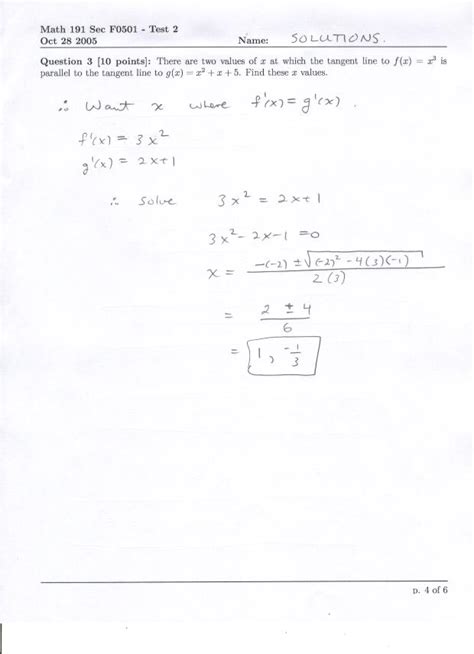 Math 191 Sec F0501 - Test 2
Oct 28 2005 Name: SOLUTIONS.
Question 3 [10 points]: There are two values of x at which the tangent line to f(x) = x³ is
parallel to the tangent line to g(x) = x² + x + 5. Find these x values.
∴ Want x where f'(x) = g'(x).
f'(x) = 3x²
g'(x) = 2x+1
∴ Solve 3x² = 2x+1
3x² - 2x - 1 = 0
x = -(-2) ± √(-2)² - 4(3)(-1)
2(3)
= 2 ± 4
6
= 1, -1/3
p. 4 of 6